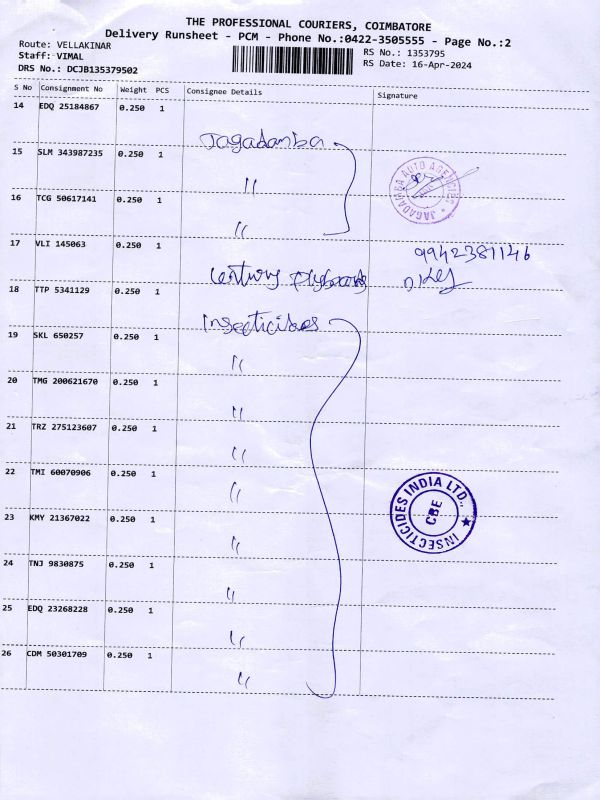 THE PROFESSIONAL COURIERS, COIMBATORE
Delivery Runsheet - PCM - Phone No.:0422-3505555 - Page No.:2
Route: VELLAKINAR
Staff: VIMAL
DRS No.: DCJB135379502
RS No.: 1353795
RS Date: 16-Apr-2024
S No Consignment No Weight PCS Consignee Details Signature
14 EDQ 25184867 0.250 1 Jagadamba
15 SLM 343987235 0.250 1 "
JAGADAMBA AUTO AGENCIES
16 TCG 50617141 0.250 1 "
17 VLI 145063 0.250 1 Century Plyboards 9942381146
18 TTP 5341129 0.250 1 Insecticides
19 SKL 650257 0.250 1 "
20 TMG 200621670 0.250 1 "
21 TRZ 275123607 0.250 1 "
22 TMI 60070906 0.250 1 "
INSECTICIDES INDIA LTD.,
CBE
23 KMY 21367022 0.250 1 "
24 TNJ 9830875 0.250 1 "
25 EDQ 23268228 0.250 1 "
26 CDM 50301709 0.250 1 "